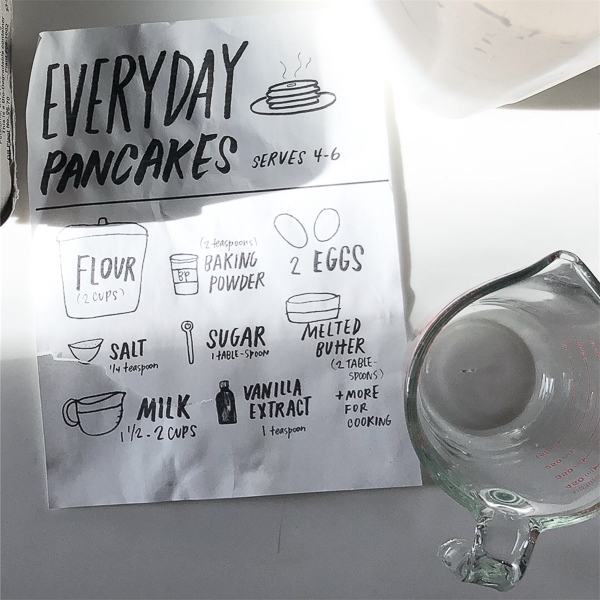 EVERYDAY
PANCAKES
SERVES 4-6
FLOUR
(2 CUPS)
(2 teaspoons)
BAKING
POWDER
BP
2 EGGS
SALT
1/4 teaspoon
SUGAR
1 TABLE-SPOON
MELTED
BUTTER
(2 TABLE-
SPOONS)
+ MORE
FOR
COOKING
MILK
1 1/2 - 2 CUPS
VANILLA
EXTRACT
1 teaspoon